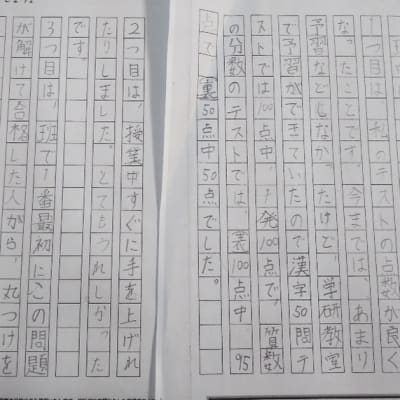 1つ目は、私のテストの点数が良く
なったことです。今までは、あまり
予習などしなかったけど、学研教室
で予習ができていたので漢字50問テ
ストでは100点中、1発100点で、算数
の分数のテストでは、表100点中95
点で、裏50点中50点でした。
2つ目は、授業中すぐに手を上げれ
たりしました。とてもうれしかった
です。
3つ目は、班で1番最初にこの問題
が解けて合格した人から、丸つけを